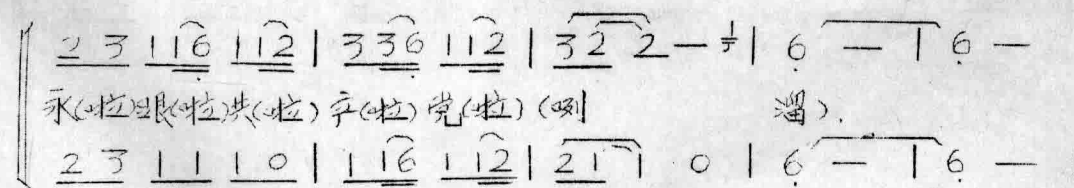 2 3 1 1 6 1 1 2 | 3 3 6 1 1 2 | 3 2 2 — | 6 — 1 6 —
永(啦)跟(啦)共(啦)产(啦)党(啦)(咧 溜).
2 3 1 1 1 0 | 1 1 6 1 1 2 | 2 1 1 0 | 6 — 1 6 —